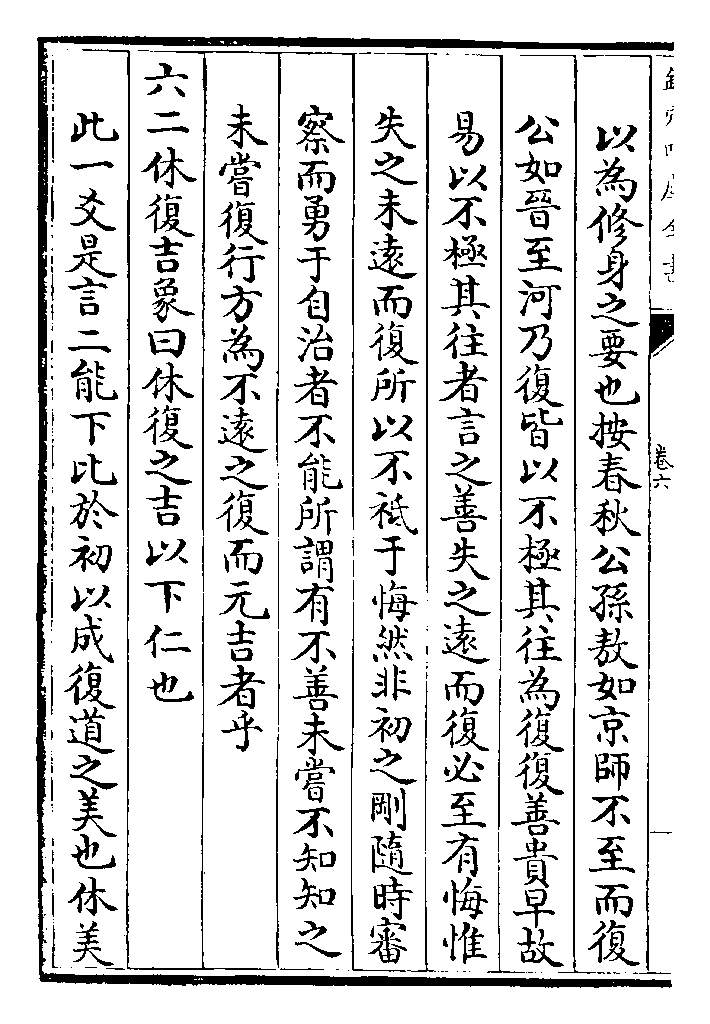 以為修身之要也按春秋公孫敖如京師不至而復
公如晉至河乃復皆以不極其往為復復善貴早故
易以不極其往者言之善失之遠而復必至有悔惟
失之未遠而復所以不祗于悔然非初之剛隨時審
察而勇于自治者不能所謂有不善未嘗不知知之
未嘗復行方為不遠之復而元吉者乎
六二休復吉象曰休復之吉以下仁也
此一爻是言二能下比於初以成復道之美也休美
卷六